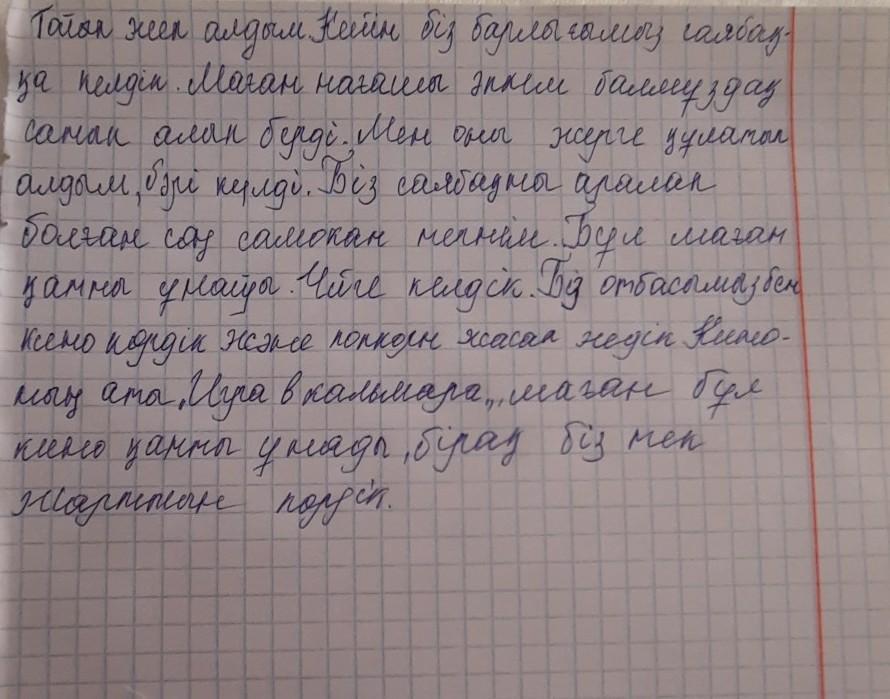 Тойып жеп алдым. Кейін біз барлығымыз саябақ-
қа келдік. Маған нағашы әпкем балмұздақ
сатып алып берді. Мен оны жерге құлатып
алдым, бәрі күлді. Біз саябақты аралап
болған соң самокат тептім. Бұл маған
қатты ұнайды. Үйге келдік. Біз отбасымызбен
кино көрдік және попкорн жасап жедік Кино-
ның аты "Игра в кальмара", маған бұл
кино қатты ұнады, бірақ біз тек
жартысын көрдік.